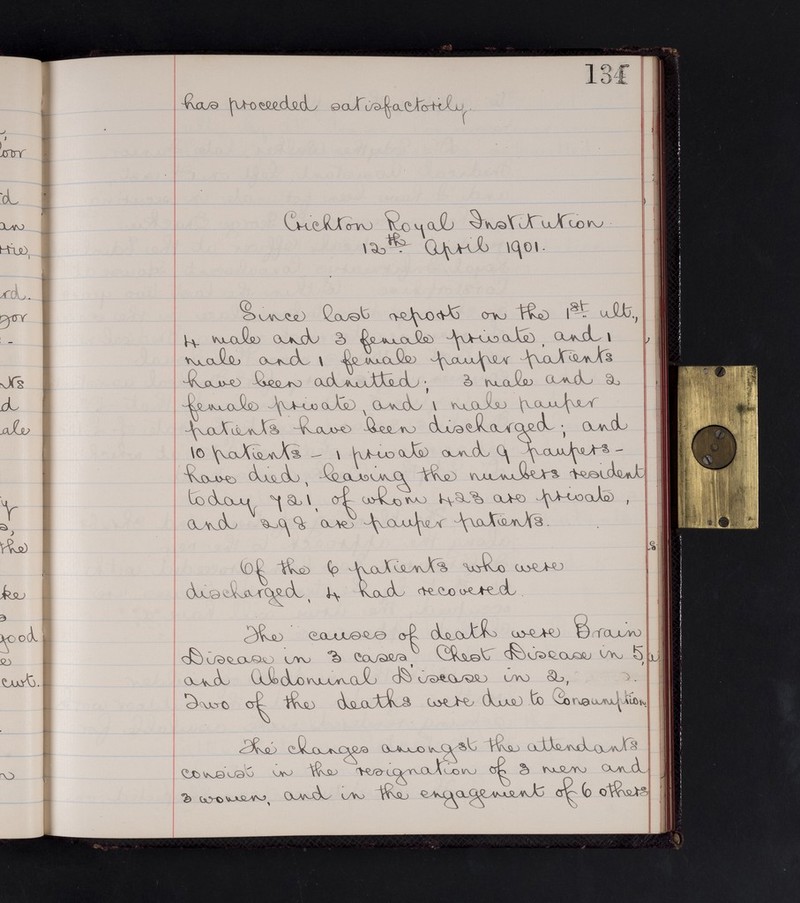 134
has proceeded satisfactorily.
Crichton Royal Institution
12th. April 1901.
Since last report on the 1st. ult.,
4 male and 3 female private, and 1
male and 1 female pauper patients
have been admitted; 3 male and 2
female private, and 1 male pauper
patients have been discharged; and
10 patients - 1 private and 9 paupers -
have died, leaving the numbers resident
today 721, of whom 423 are private,
and 298 are pauper patients.
Of the 6 patients who were
discharged, 4 had recovered.
The causes of death were Brain
Disease in 3 cases, Chest Disease in 5,
and Abdominal Disease in 2,
Two of the deaths were due to Consumption
The changes amongst the attendants
consist in the resignation of 3 men and
3 women, and in the engagement of 6 others